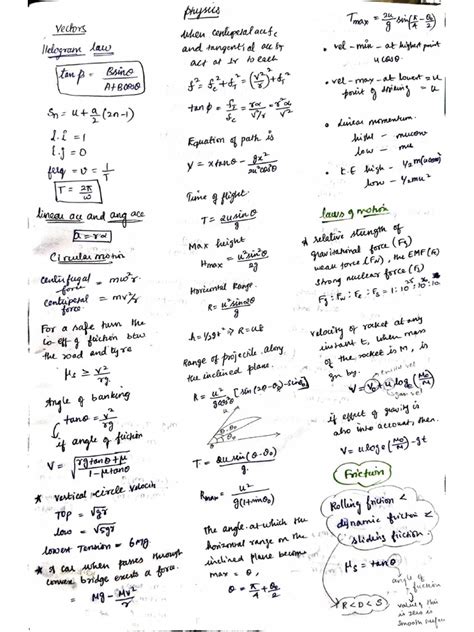 Physics
Vectors
llelogram law
tan β = Bsinθ / A+Bcosθ
Sn = u + a/2 (2n-1)
î.î = 1
î.ĵ = 0
freq = υ = 1/T
T = 2π/ω
linear acc and ang acc
a = rα
Circular motion
centrifugal force = mω²r.
centripetal force = mv²/r
For a safe turn the
co-eff of friction btw
the road and tyre
μs ≥ v²/rg
Angle of banking
tanθ = v²/rg
if angle of friction
V = √(rg tanθ+μ / 1-μtanθ)
* vertical circle velocity
TOP = √gr
low = √5gr
lowest Tension = 6mg
* if car when passes through
convex bridge exerts a force.
= Mg - Mv²/r
when centripetal acc fc
and tangential acc fT
act at ⊥r to each
f² = fc² + fT² = (v²/r)² + fT²
tan φ = fT/fc = rα/v²/r = r²α/v²
Equation of path is
y = x tanθ - gx²/2u²cos²θ
Time of flight
T = 2usinθ/g
Max height
Hmax = u²sin²θ/2g
Horizontal Range.
R = u²sin2θ/g
Range of projectile along
the inclined plane.
R = u²/gcos²θ₀ [sin(2θ-θ₀)-sinθ₀]
θ-θ₀
θ₀
T = 2u sin(θ-θ₀)/g.
Rmax = u²/g(1+sinθ₀)
the angle at which the
horizontal range on the
inclined plane becomes
max = θ,
θ = π/4 + θ₀/2
Tmax = 2u/g sin(π/4 - θ₀/2)
• vel - min - at highest point
u cosθ.
• vel - max - at lowest = u
point of striking = u
• linear momentum.
hight - mucosθ
low - mu
• K.E high - ½m(ucosθ)²
low - ½mu²
laws of motion
* relative strength of
gravitational force (Fg)
weak force (Fw), the EMF (Fe)
strong nuclear force (Fs)
Fg : Fw : Fe : Fs = 1:10²⁵:10³⁶:10³⁸
velocity of rocket at any
instant t, when mass
of the rocket is M, is
gn by.
V = V₀ + u log e (M₀/M)
if effect of gravity is
also into account, then.
V = u log e (M₀/M) - gt
Friction
Rolling friction <
dynamic friction <
sliding friction.
μs = tanθ
angle of
friction
* R < D < S
value of this
is zero in
smooth surface